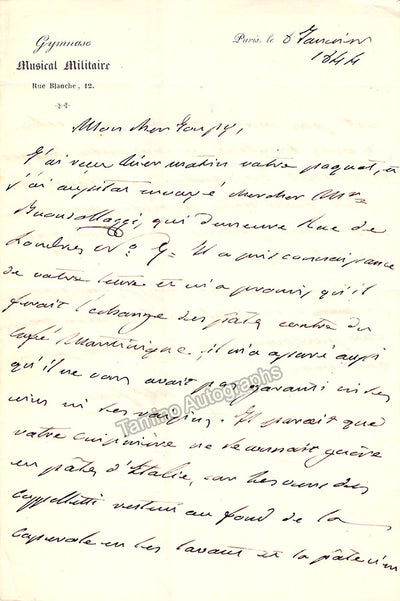 Gymnase
Musical Militaire
Rue Blanche, 12.
Paris, le 8 Janvier
1844
Mon cher
J'ai reçu hier matin votre paquet, et
j'ai aussitôt envoyé chercher Mr
Buonsollazzi, qui demeure Rue de
Londres No 9. Il a pris connaissance
de votre lettre et m'a promis qu'il
ferait l'échange des pâtes contre du
café Martinique, il m'a assuré aussi
qu'il ne vous avait pas garanti ni les
ni les Il parait que
votre cuisinière ne se connait guère
en pâtes d'Italie, car les
Cappelletti restent au fond de la
casserole en les lavant et la pâte
Tamino Autographs